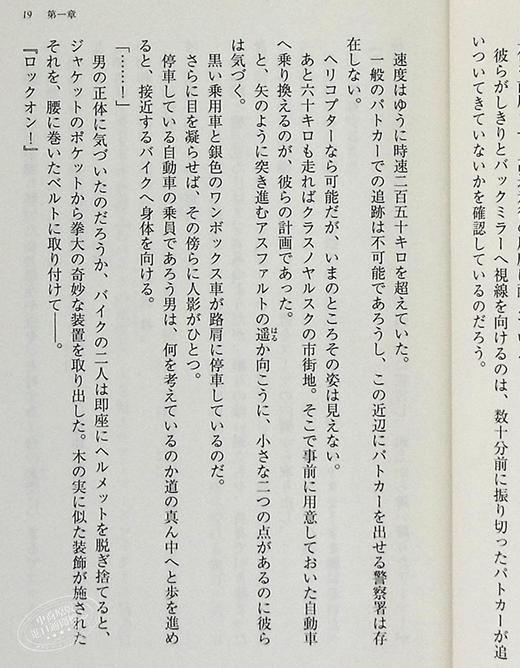 彼らがしきりとバックミラーへ視線を向けるのは、数十分前に振り切ったパトカーが追
いついてきていないかを確認しているのだろう。
19 第一章
速度はゆうに時速二百五十キロを超えていた。
一般のパトカーでの追跡は不可能であろうし、この近辺にパトカーを出せる警察署は存
在しない。
ヘリコプターなら可能だが、いまのところその姿は見えない。
あと六十キロも走ればクラスノヤルスクの市街地。そこで事前に用意しておいた自動車
へ乗り換えるのが、彼らの計画であった。
と、矢のように突き進むアスファルトの遥か向こうに、小さな二つの点があるのに彼ら
はる
は気づく。
黒い乗用車と銀色のワンボックス車が路肩に停車しているのだ。
さらに目を凝らせば、その傍らに人影がひとつ。
停車している自動車の乗員であろう男は、何を考えているのか道の真ん中へと歩を進め
ると、接近するバイクへ身体を向ける。
「……！」
男の正体に気づいたのだろうか、バイクの二人は即座にヘルメットを脱ぎ捨てると、
ジャケットのポケットから拳大の奇妙な装置を取り出した。木の実に似た装飾が施された
それを、腰に巻いたベルトに取り付けて――。
『ロックオン！』